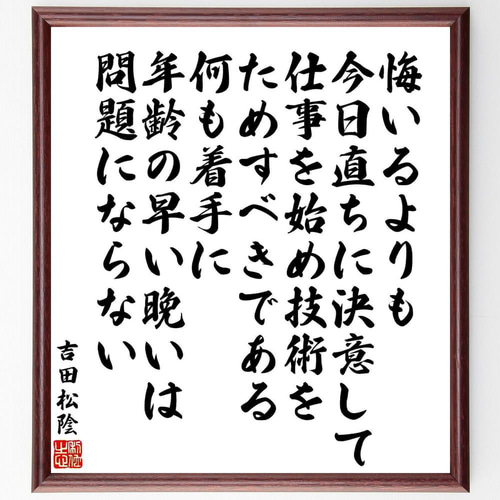 悔いるよりも
今日直ちに決意して
仕事を始め技術を
ためすべきである
何も着手に
年齢の早い晩いは
問題にならない
吉田松陰